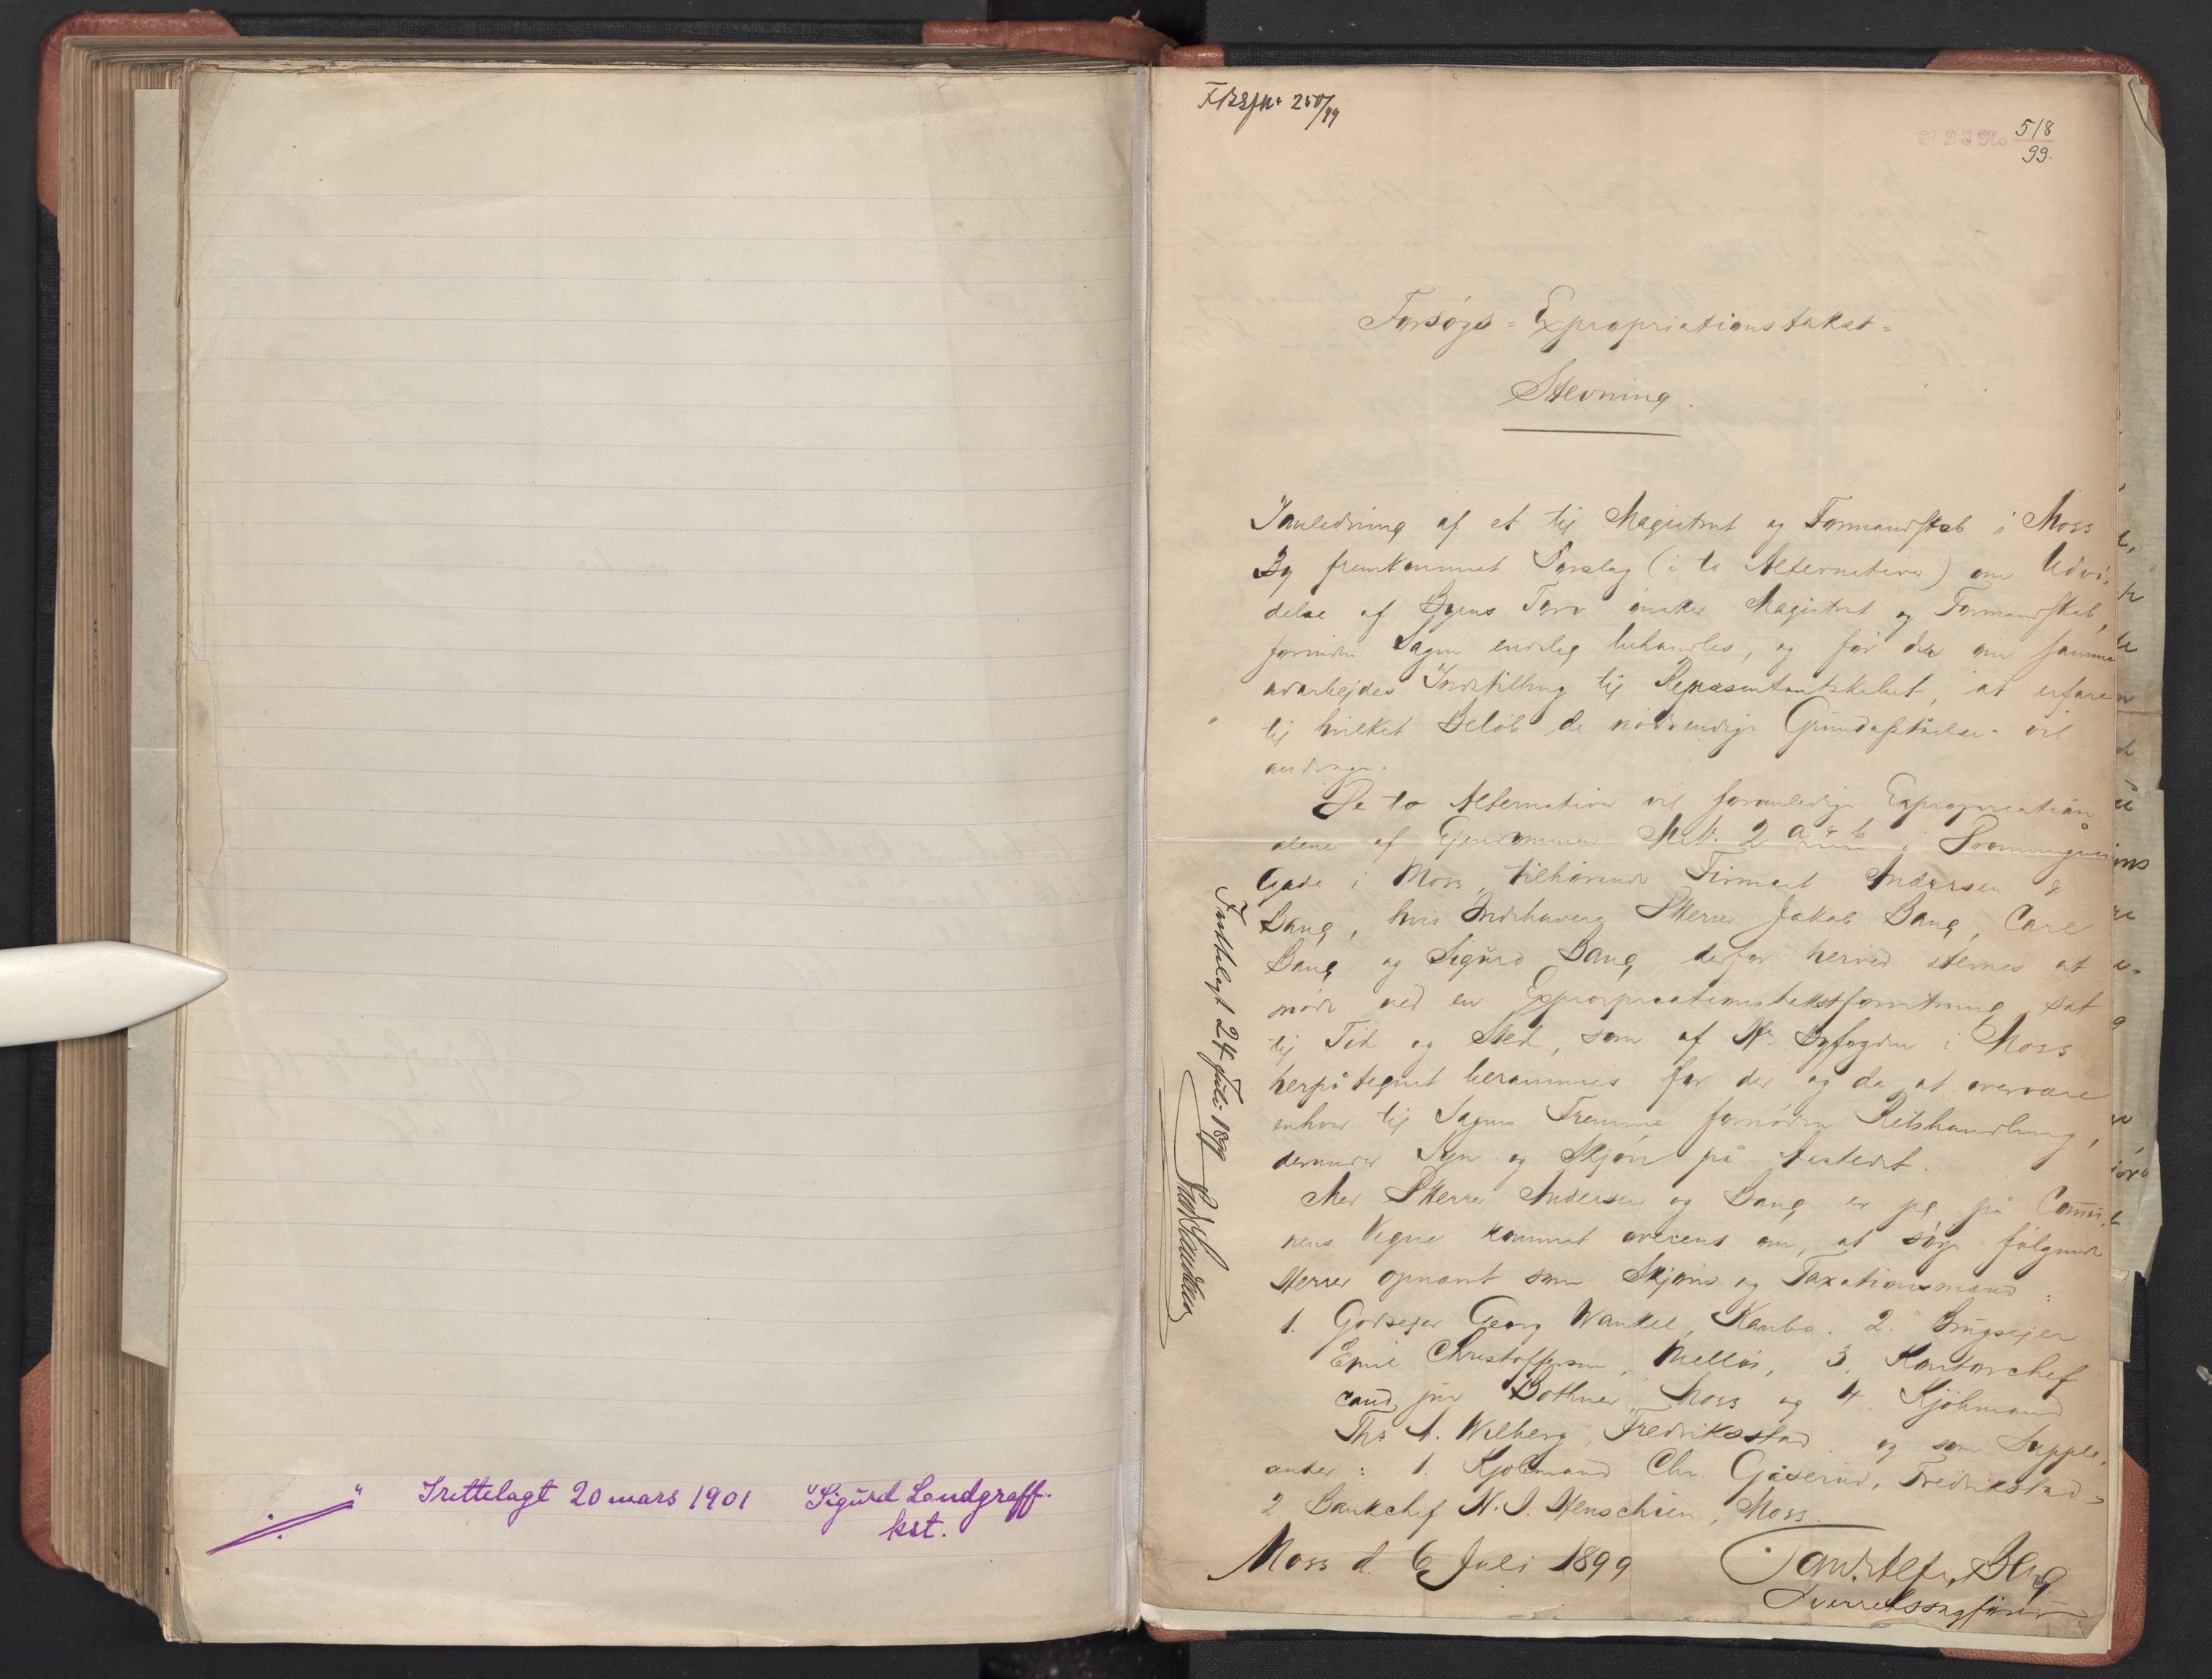 Irettelagt 20 mars 1901 "Sigurd Landgraff.
kst.
250/99
No 518
99.
Forsøgs = Expropriationstakst =
Stevning.
I anledning af et til Magistrat og Formandskab i Moss
By fremkommet Forslag (i to Alternativer) om Udvi-
delse af Byens Torv ønsker Magistrat og Formandskab,
forinden Sagen endelig behandles, og før der om samme
udarbejdes Indstilling til Repræsentantskabet, at erfare
til hvilket Beløb de nødvendige Grundafståelser vil
andrage.
De to Alternativer vil foranledige Expropriation
alene af Ejendommen Mat. 2 a & b i Dronningens
Gade i Moss, tilhørende Firmaet Andersen &
Bang, hvis Indehavere Herrer Jakob Bang, Carl
Bang og Sigurd Bang derfor herved stevnes at
møde ved en Expropriationstakstforretning sat
til Tid og Sted, som af Hr. Byfogden i Moss
herpå tegnet berammes for der og da at overvære
enhver til Sagens Fremme fornøden Retshandling,
derunder Syn og Skjøn på Aastedet.
Med Herrer Andersen og Bang er jeg på Commu-
nens Vegne kommet overens om, at søge følgende
Herrer opnævnt som Skjøns og Taxationsmænd:
1. Godsejer Georg Wankel, Kambo. 2. Brugsejer
Emil Christoffersen, Melløs, 3. Kontorchef
cand. jur Bothner Moss og 4 Kjøbmand
Ths A. Wilberg, Fredriksstad og som Supple-
anter: 1. Kjøbmand Chr. Gåserud, Fredrikstad
2 Bankchef N. J. Henschien, Moss.
Moss d. 6 Juli 1899
Overretssagfører
Fremlagt 24 Juli 1899